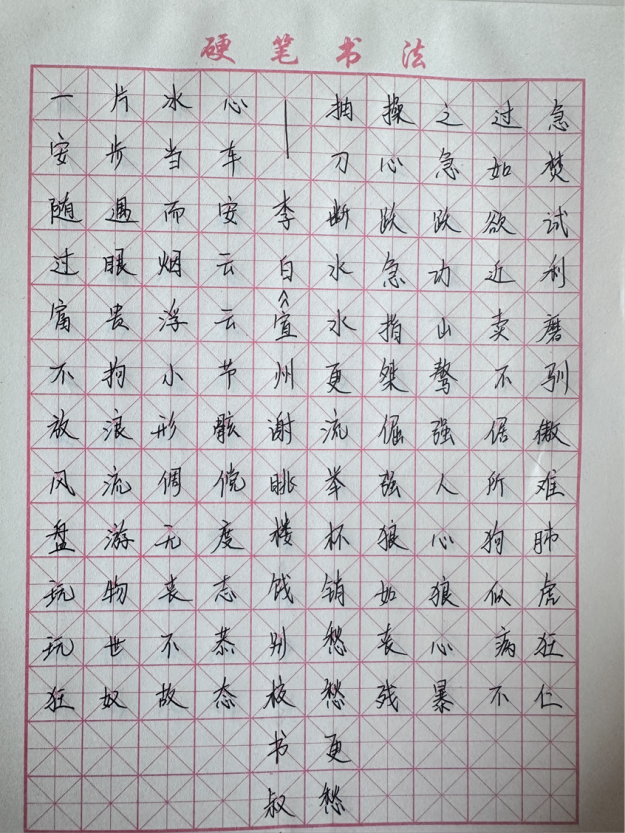 硬笔书法
一片冰心
安步当车
随遇而安
过眼烟云
富贵浮云
不拘小节
放浪形骸
风流倜傥
盘游无度
玩物丧志
玩世不恭
狂奴故态
抽刀断水水更流举杯销愁愁更愁
——李白《宣州谢朓楼饯别校书叔
操之过急
心急如焚
跃跃欲试
急功近利
指山卖磨
桀骜不驯
倔强倨傲
强人所难
狼心狗肺
如狼似虎
丧心病狂
残暴不仁